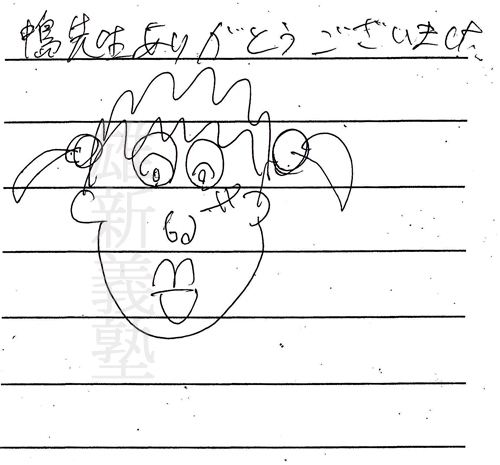 鴨先生ありがとうございました
雄新義塾